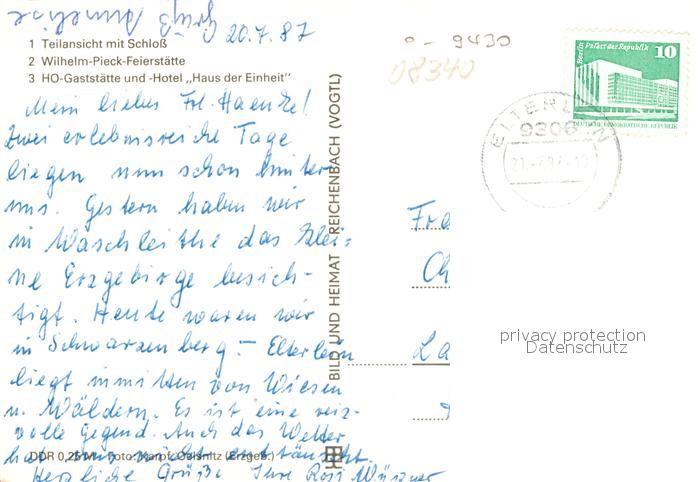 Gruß Annelise
20.7.87
1 Teilansicht mit Schloß
2 Wilhelm-Pieck-Feierstätte
3 HO-Gaststätte und -Hotel „Haus der Einheit"
Mein liebes Frl. Haenke!
Zwei erlebnisreiche Tage
liegen nun schon hinter
uns. Gestern haben wir
in Waschleithe das Klei-
ne Erzgebirge besich-
tigt. Heute waren wir
in Schwarzenberg. - Elterlein
liegt inmitten von Wiesen
u. Wäldern. Es ist eine reiz-
volle Gegend. Auch das Wetter
hat uns nicht enttäuscht.
Herzliche Grüße Ihre Rosl
DDR 0,25 M Foto: Kämpf, Oelsnitz (Erzgeb.)
BILD UND HEIMAT REICHENBACH (VOGTL)
9430
08340
Berlin Palast der Republik
10
DEUTSCHE DEMOKRATISCHE REPUBLIK
ELTERLEIN
9306
Fra
Ch
La
privacy protection
Datenschutz